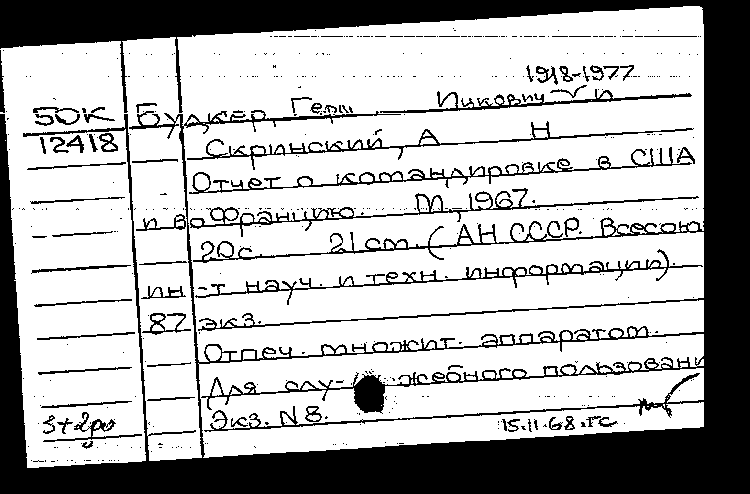 1918-1977
50К Будкер, Герш Ицкович и
12418 Скринский, А Н
Отчет о командировке в США
и во Францию. М., 1967.
20с. 21 cm. (АН СССР. Всесоюз
ин-т науч. и техн. информации).
87 экз.
Отпеч. множит. аппаратом.
Для слу-жебного пользовани
Экз. N 8.
15.11.68.ГС